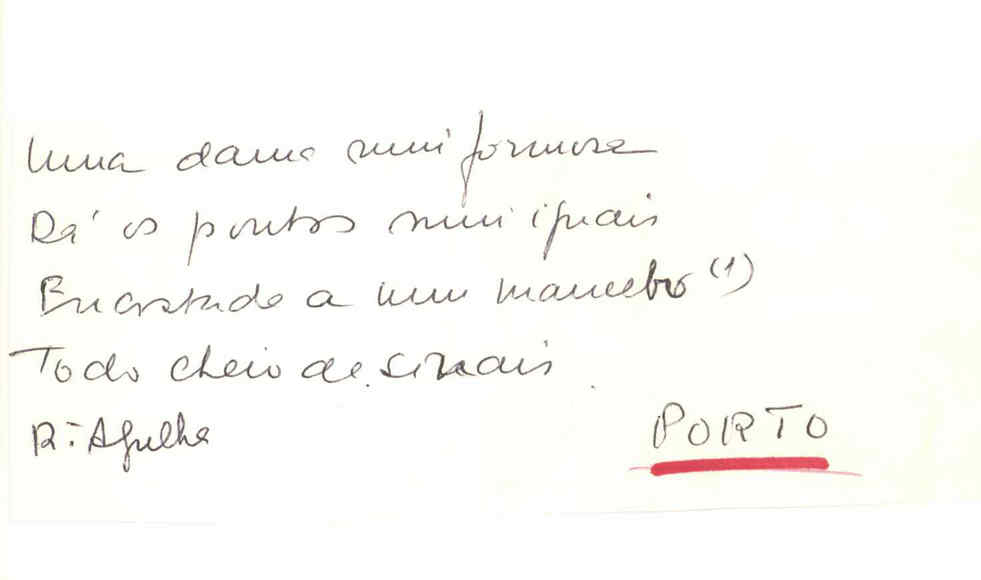 Uma dama mui formosa
Dá os pontos mui iguais
Encostado a um mancebo (1)
Todo cheio de sinais
R: Agulha
PORTO